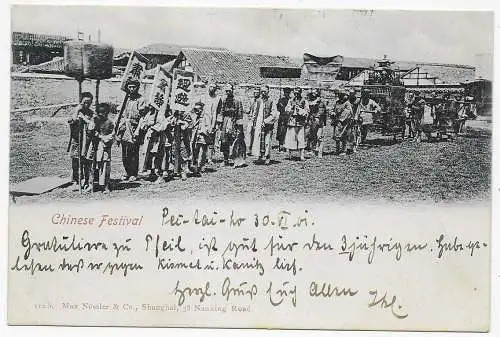 Chinese Festival
Pei-tai-ho 30.VI.01.
Gratuliere zu Pfeil, ist gut für den 3jährigen. Habe ge-
lesen daß er gegen Kismet u. Kanitz lief.
Herzl. Gruß Euch Allen
1126. Max Nössler & Co., Shanghai, 38 Nanking Road